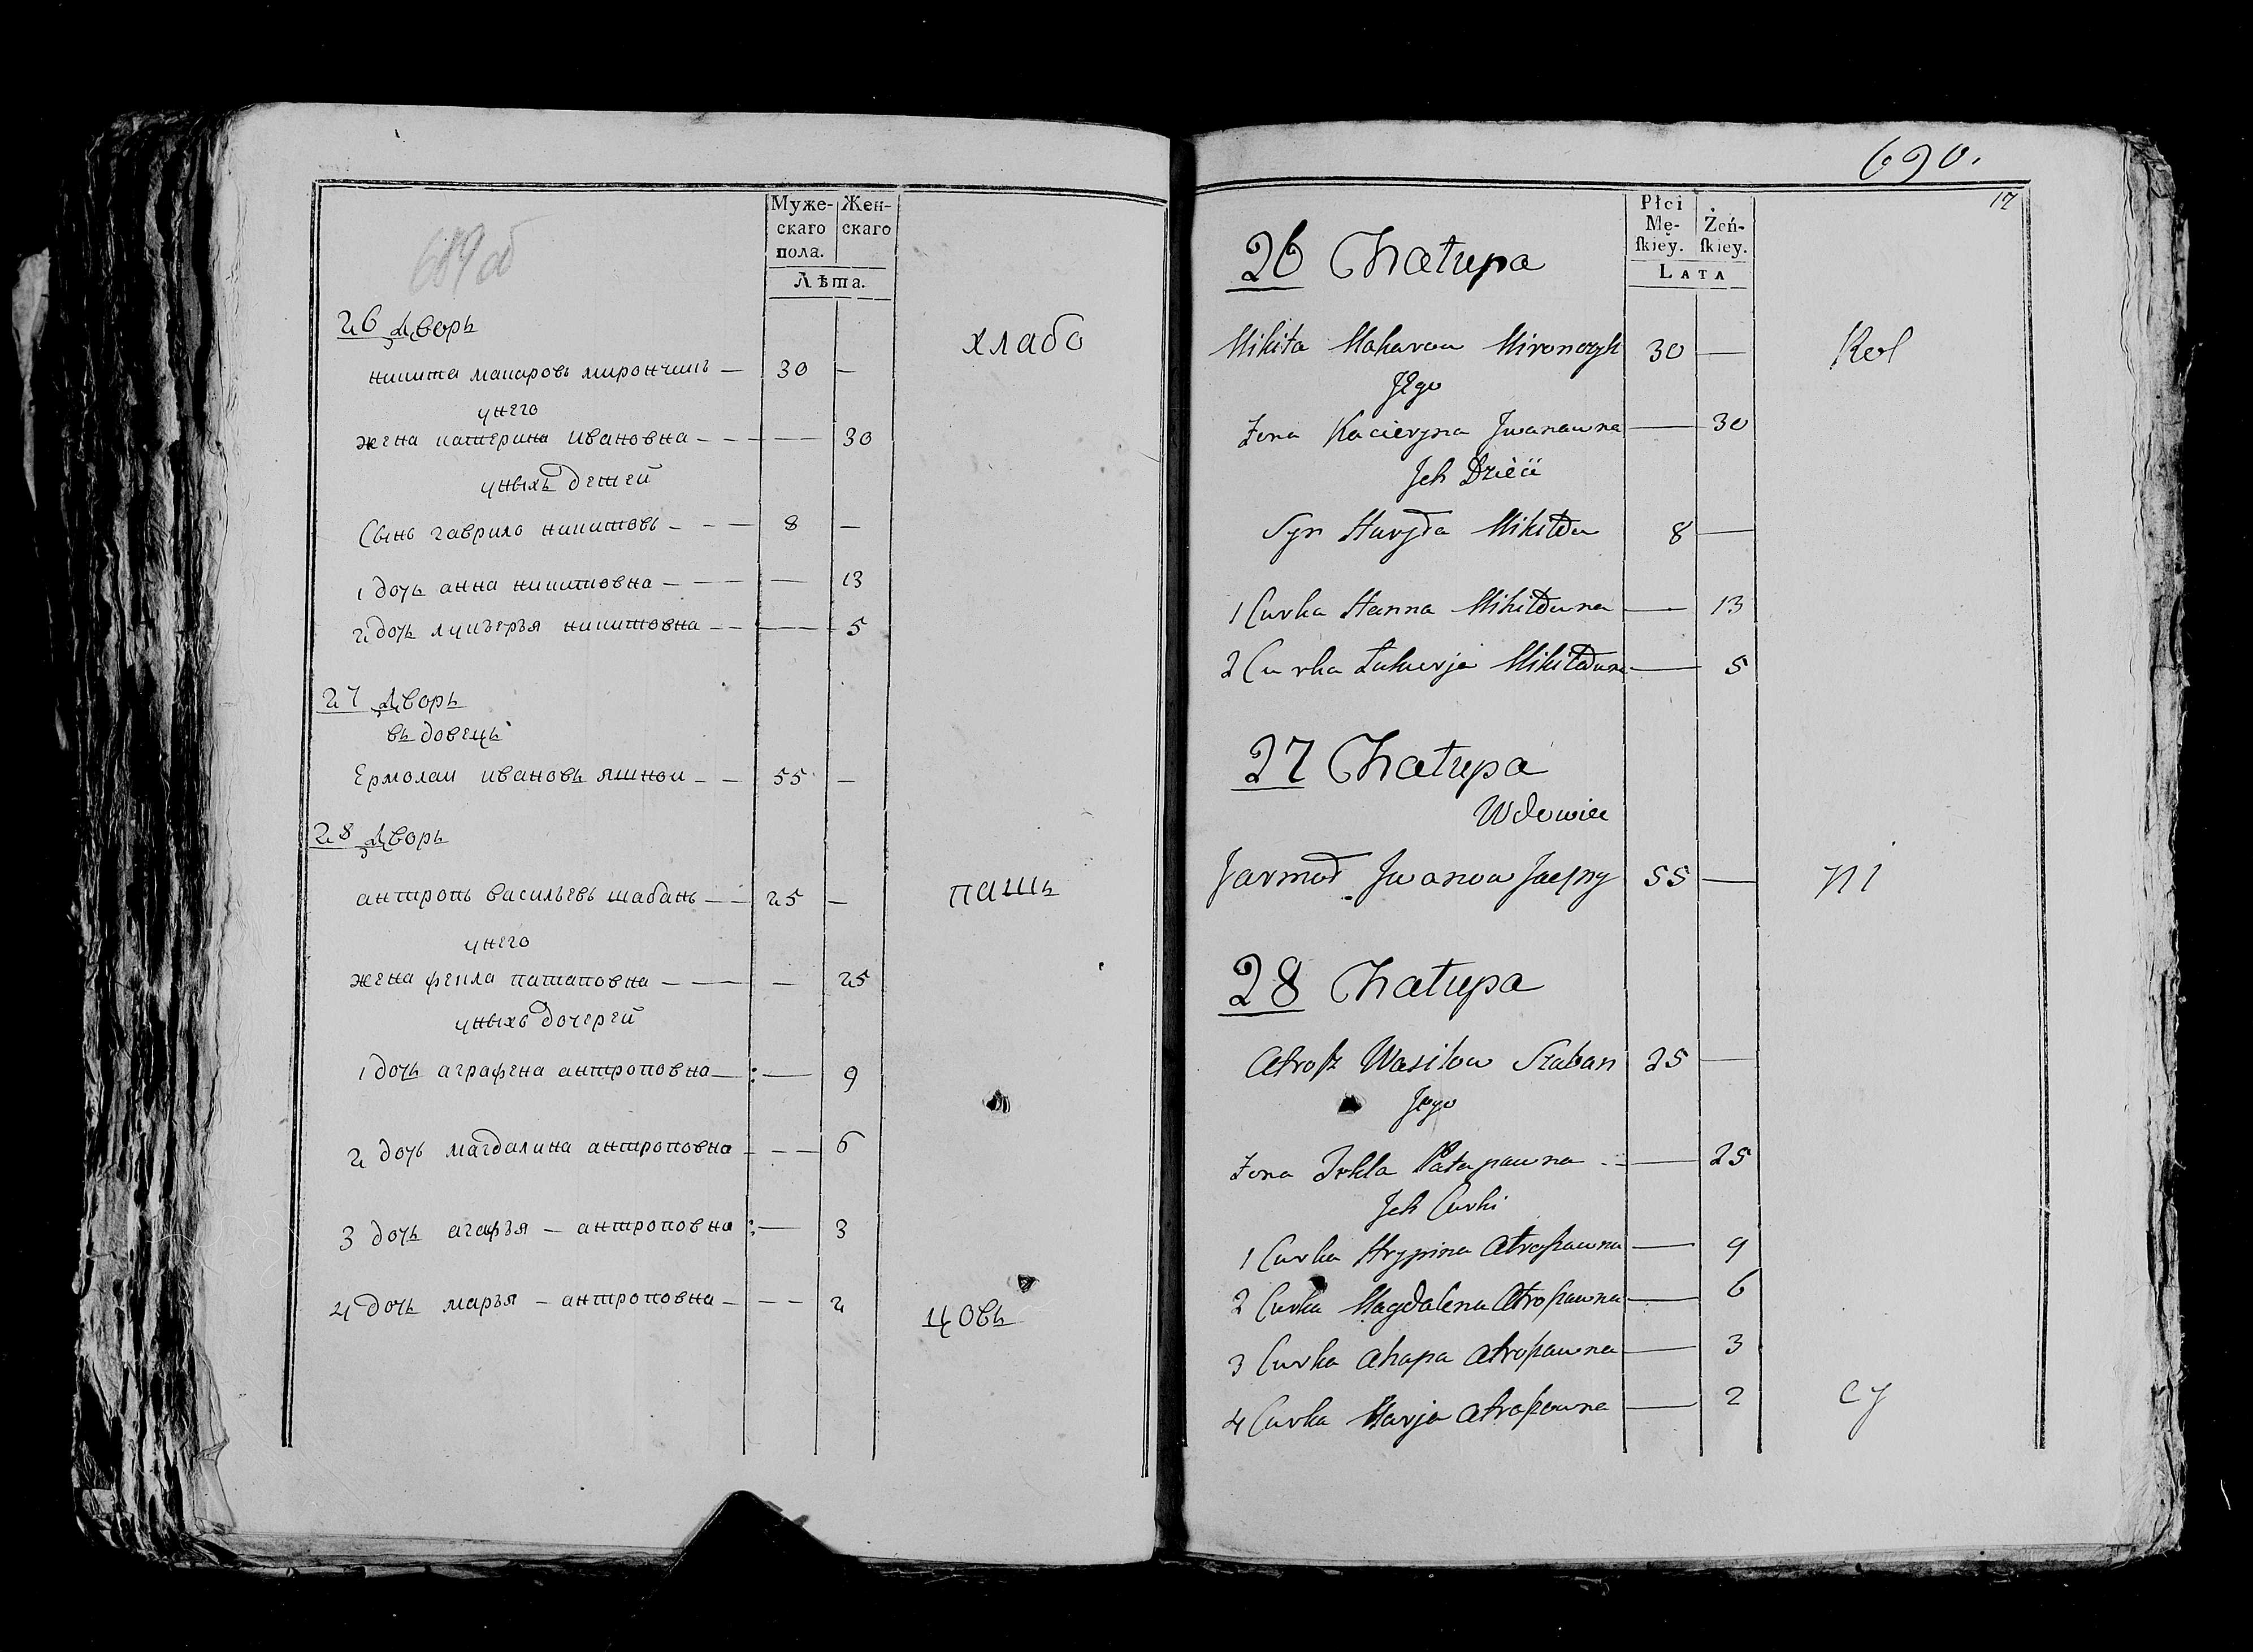 689 об
Муже-
скаго
пола.
Жен-
скаго
Лѣта.
26 Дворъ
хлабо
никита макаровъ мирончикъ — 30 —
унего
жена катерина ивановна - - - — 30
уныхъ детей
Сынъ гаврило никитовъ - - — 8 —
1 дочь анна никитовна - - — — 13
2 дочь лукерья никитовна - - — 5
27 Дворъ
въдовецъ
Ермолаи ивановъ - - 55 —
28 Дворъ
антропъ васильевъ шабанъ - — 25 —
пашъ
унего
жена фекла патаповна - — — 25
уныхъ дочерей
1 дочь аграфена антроповна — : — 9
2 дочь магдалина антроповна - - — 6
3 дочь агафья — антроповна : — 3
4 дочь марья — антроповна - - — 2
цовъ
690.
17
Płci
Mę-
skiey.
Żeń-
skiey.
LATA
26 Chałupa
Mikita Makarow Mironczyk 30 —
Rol
Jego
Żona Kacieryna Jwanawna — 30
Jch Dzieci
Syn Hawryła Mikitow 8 —
1 Curka Hanna Mikitowna — 13
2 Curka Łukierja Mikitowna — 5
27 Chałupa
Wdowiec
Jarmoł Jwanow 55 —
ni
28 Chałupa
Atrop Wasilow Szaban 25 —
Jego
Żona Patapawna - — 25
Jch Curki
1 Curka Hrypina Atropawna — 9
2 Curka Magdalena Atropawna — 6
3 Curka Ahapa Atropawna — 3
4 Curka Marja Atropawna — 2
cy